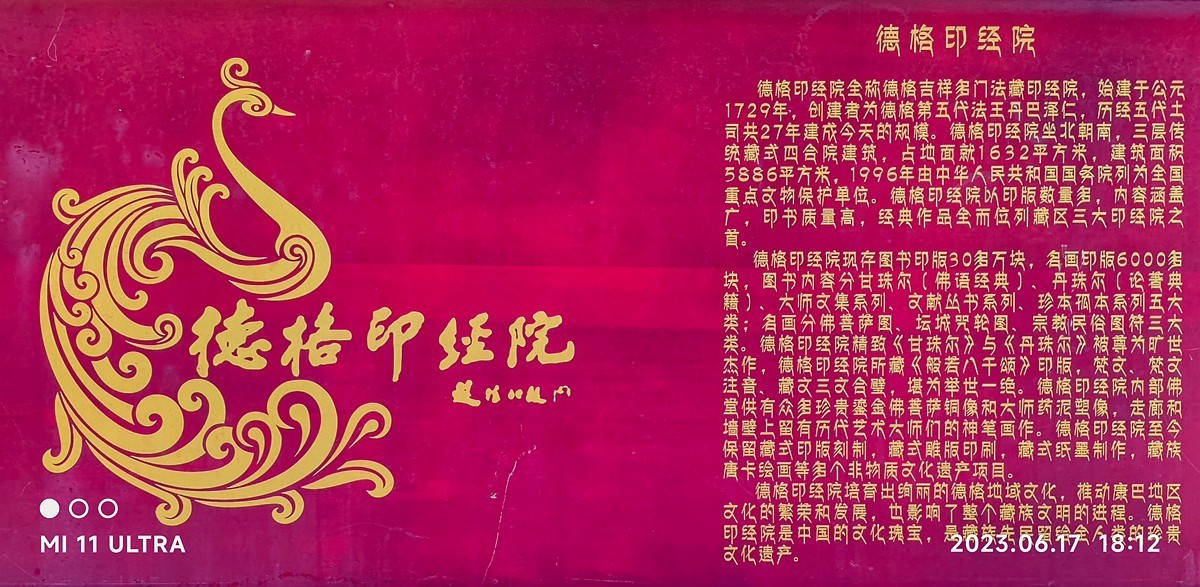 德格印经院
德格印经院全称德格吉祥多门法藏印经院，始建于公元
1729年，创建者为德格第五代法王丹巴泽仁，历经五代土
司共27年建成今天的规模。德格印经院坐北朝南，三层传
统藏式四合院建筑，占地面就1632平方米，建筑面积
5886平方米，1996年由中华人民共和国国务院列为全国
重点文物保护单位。德格印经院以印版数量多，内容涵盖
广，印书质量高，经典作品全而位列藏区三大印经院之
首。
德格印经院现存图书印版30多万块，名画印版6000多
块，图书内容分甘珠尔（佛语经典）、丹珠尔（论著典
籍）、大师文集系列、文献丛书系列、珍本孤本系列五大
类；名画分佛菩萨图、坛城咒轮图、宗教民俗图符三大
类。德格印经院精致《甘珠尔》与《丹珠尔》被尊为旷世
杰作，德格印经院所藏《般若八千颂》印版，梵文、梵文
注音、藏文三文合璧，堪为举世一绝。德格印经院内部佛
堂供有众多珍贵鎏金佛菩萨铜像和大师药泥塑像，走廊和
墙壁上留有历代艺术大师们的神笔画作。德格印经院至今
保留藏式印版刻制，藏式雕版印刷，藏式纸墨制作，藏族
唐卡绘画等多个非物质文化遗产项目。
德格印经院培育出绚丽的德格地域文化，推动康巴地区
文化的繁荣和发展，也影响了整个藏族文明的进程。德格
印经院是中国的文化瑰宝，是藏族先民留给全人类的珍贵
文化遗产。
德格印经院
MI 11 ULTRA
2023.06.17 18:12